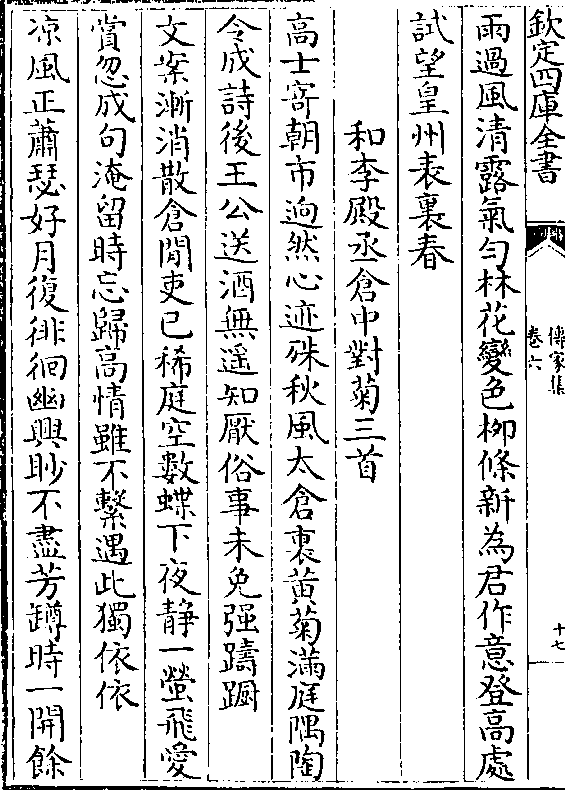 欽定四庫全書
傳家集
卷六
十七
雨過風清露氣勻林花變色柳條新為君作意登高處
試望皇州表裏春
和李殿丞倉中對菊三首
高士寄朝市逈然心迹殊秋風太倉裏黄菊滿庭隅陶
令成詩後王公送酒無遥知厭俗事未免强躊蹰
文案漸消散倉閒吏已稀庭空數蝶下夜静一螢飛愛
賞忽成句淹留時忘歸高情雖不繫遇此獨依依
凉風正蕭瑟好月復徘徊幽興眇不盡芳罇時一開餘